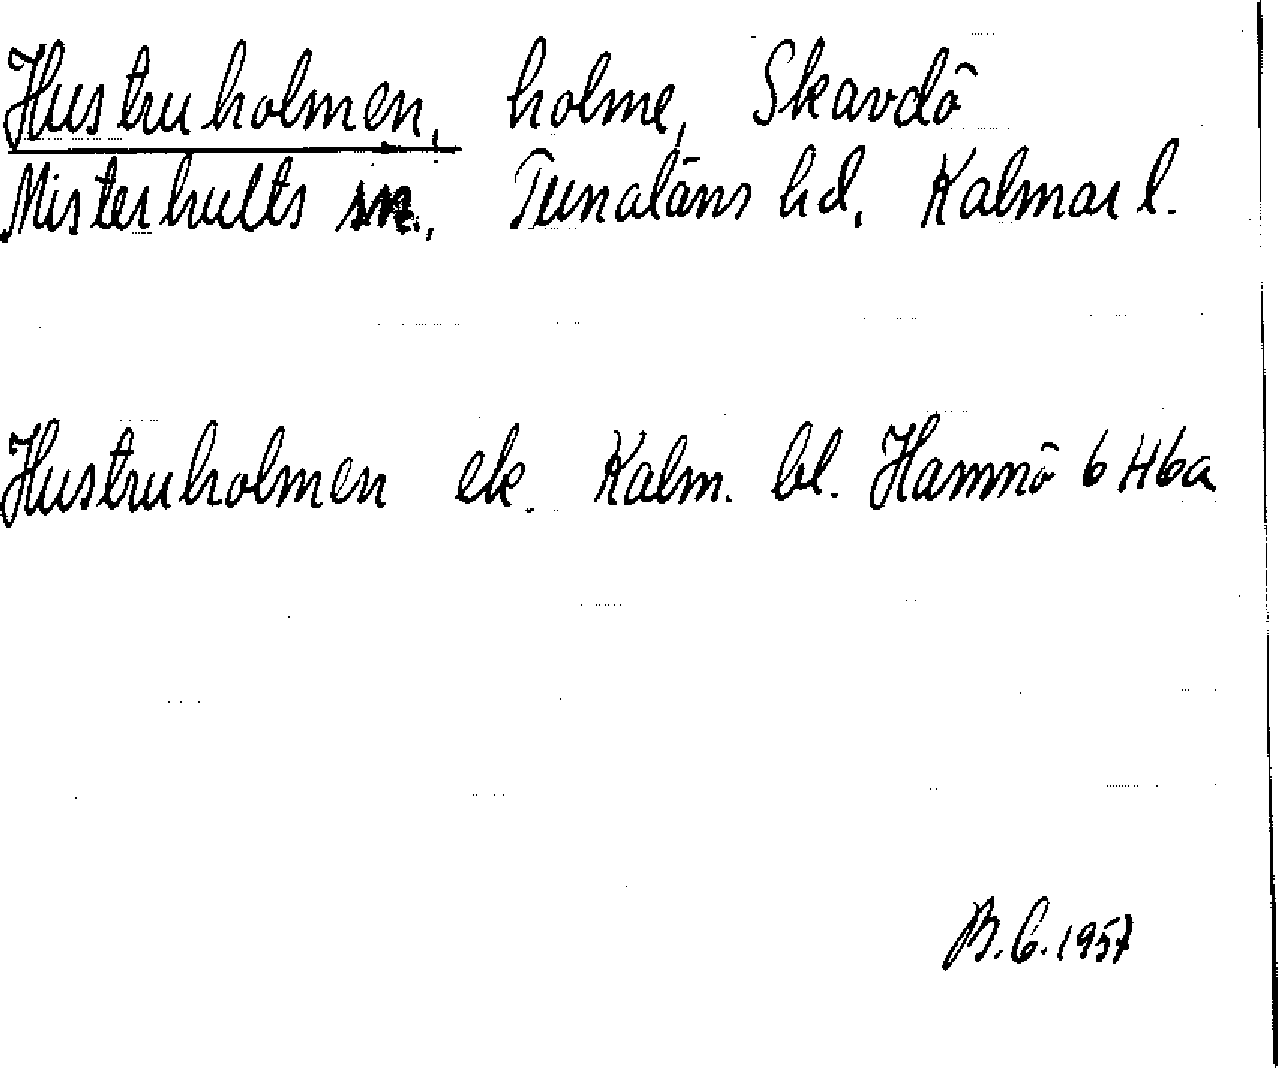 Hustruholmen, holme, Skavdö
Misterhults sn., Tunaläns hd, Kalmar l.
Hustruholmen ek. Kalm. bl. Hamnö 6 H6a
B.C. 1957